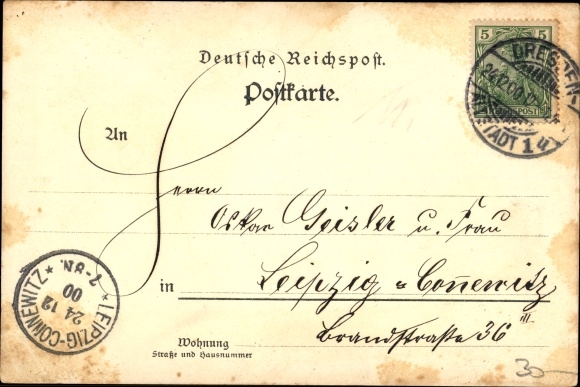 Deutsche Reichspost.
Postkarte.
5 5
DRESDEN-ALTSTADT 14
24.12.00
An
Herrn
Oskar Geisler u. Frau
in Leipzig=Connewitz
Brandstraße 36 III
LEIPZIG-CONNEWITZ
24 12
00
7-8N.
Wohnung
Straße und Hausnummer
30